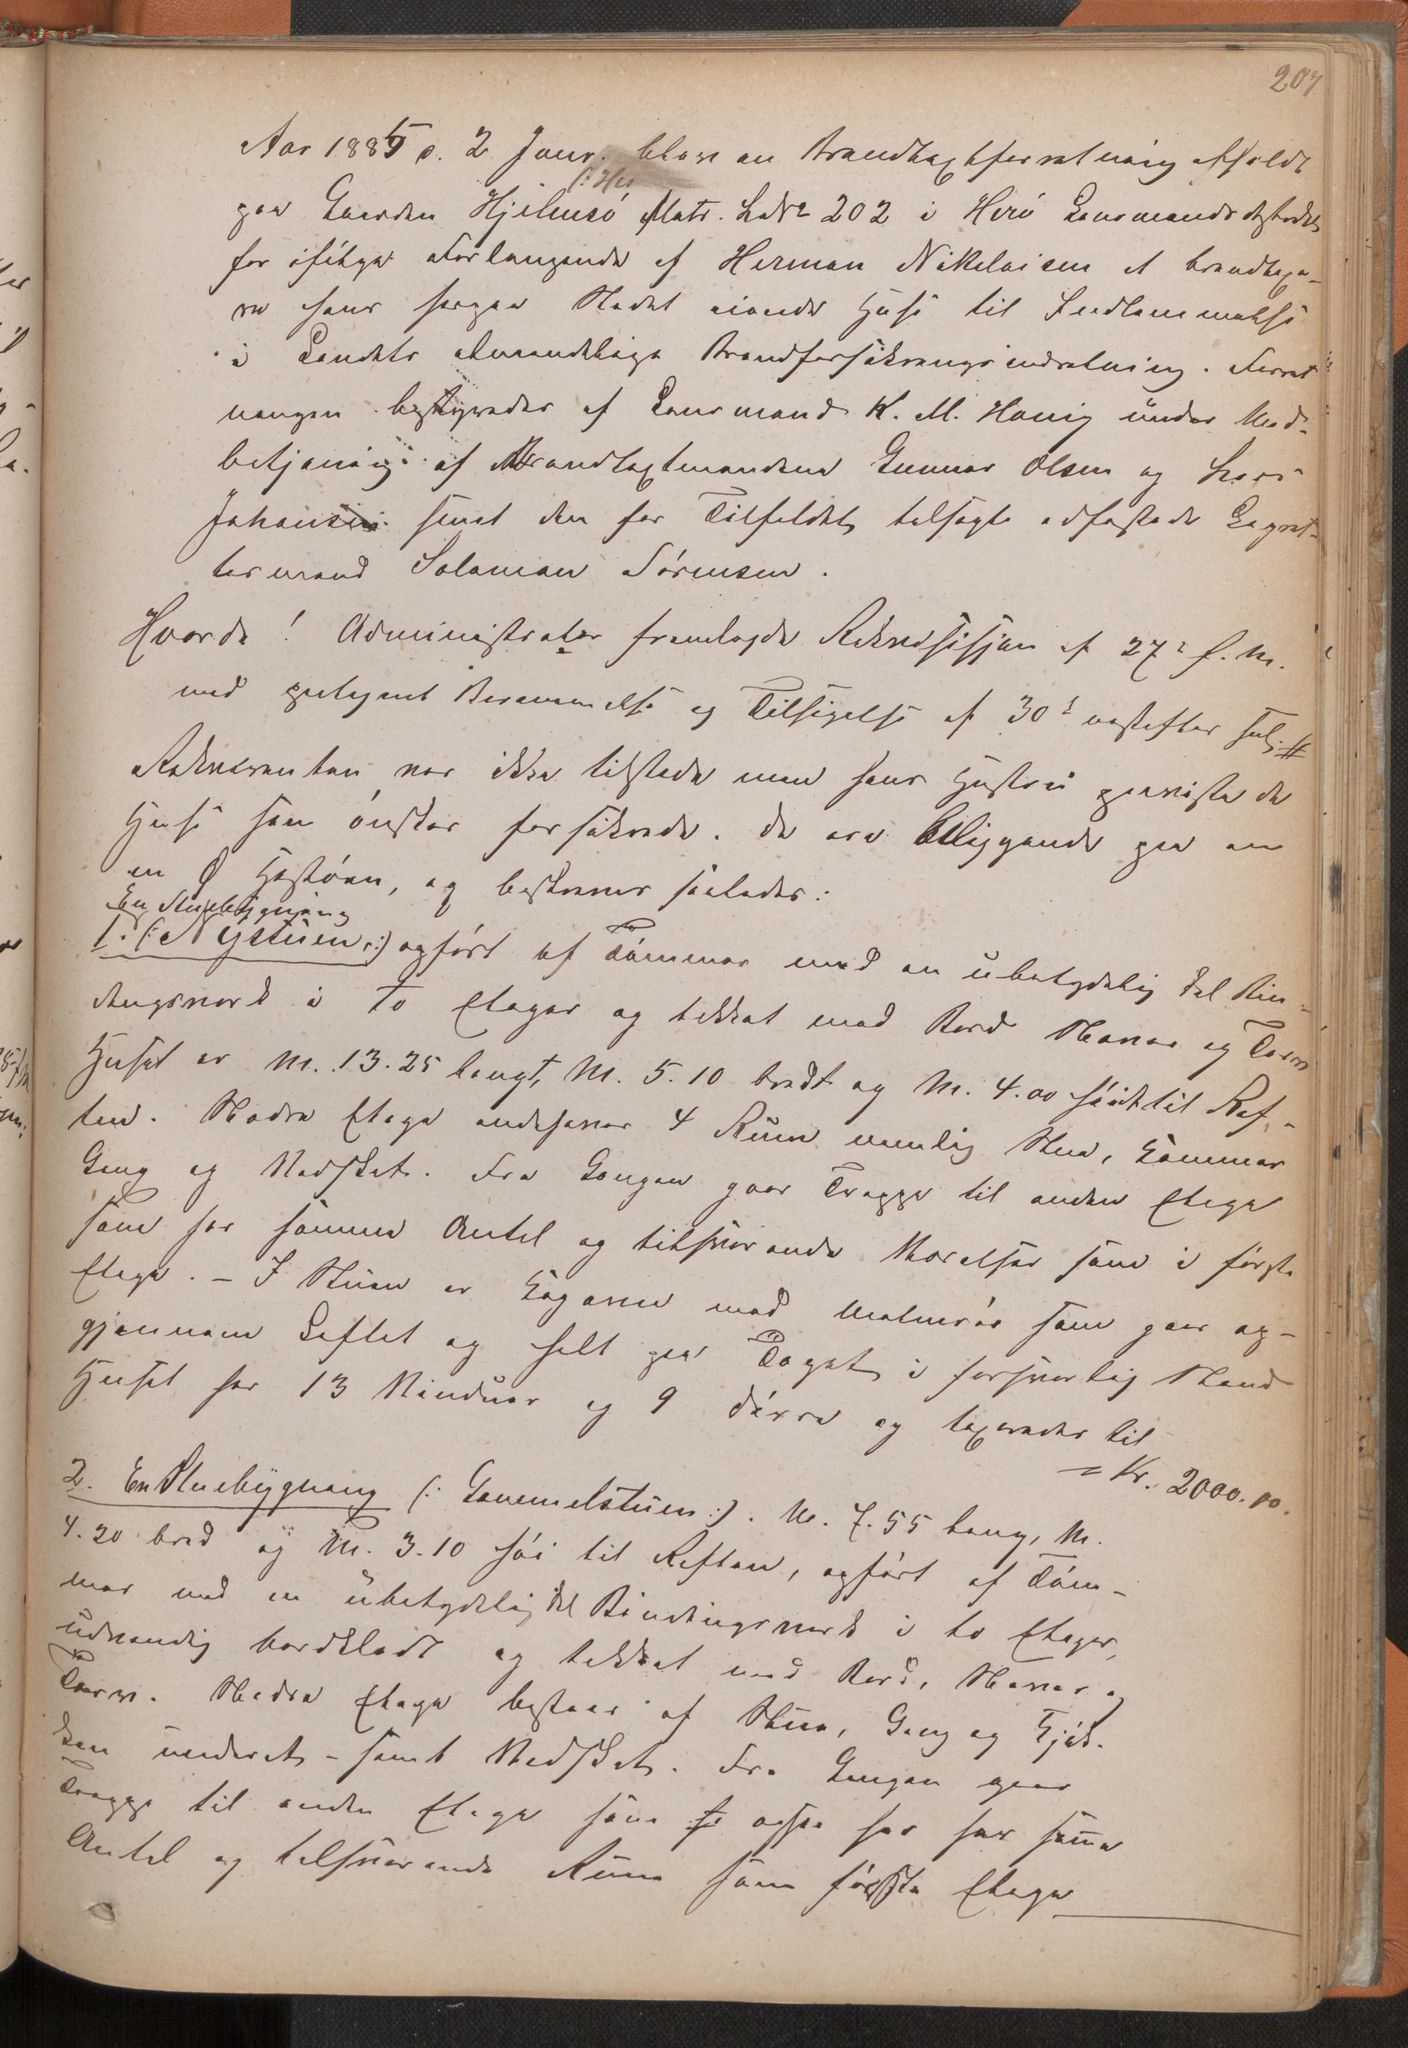 207
Aar 1885 d. 2 Janr. blev en Brandtaxtforretning afholdt
paa Gaarden Hjelmsö Matr. LNr 202 i Herö Lensmandsdistrikt
for ifölge Forlangende af Herman Nikolaisen at brandtaxe-
re hans herpaa Stedet eiende Huse til Indlemmelse
i Landets almindelige Brandforsikringsindretning. Forret
ningen bestyredes af Lensmand K. M. Hovig under Med-
betjening af Brandtaxtmændene Gunnar Olsen og Lars
Johansen samt den for Tilfældet tilsagte edfæstede Lagret-
tesmand Salamon Sörensen.
Hvorda! Administrator fremlagde Rekvisisjon af 27de f. M.
med paategnet Berammelse og Tilsigelse af 30te næstefter
Rekvirenten var ikke tilstede men hans Hustru paaviste de
Huse som önskes forsikrede. De ere beliggende paa en
en Ø Hestöen, og beskrives saaledes:
En Stuebygning
1. (: Nystuen :) opfört af Tömmer med en ubetydelig Del Bin-
dingsverk i to Etager og tækket med Bord Næver og Torv
Huset er M. 13.25 langt, M. 5.10 bredt og M. 4.00 höit til Raf-
ten. Nedre Etage indeholder 4 Rum nemlig Stue, Kammer
Gang og Vedskot. Fra Gangen gaar Trappe til anden Etage
som har samme Antal og tilsvarende Værelser som i förste
Etage. – I Stuen er Kogovn med Malmrör som gaar op-
gjennem Loftet og helt paa Taget i forsvarlig Stand
Huset har 13 Vinduer og 9 Dörre og taxeredes til
= Kr. 2000.00.
2. En Stuebygning (: Gammelstuen :). M. 7.55 lang, M.
4.20 bred og M. 3.10 höi til Raften, opfört af Töm-
mer med en ubetydelig Del Bindingsverk i to Etager,
udvendig bordklædt og tækket med Bord, Næver og
Torv. Nedre Etage bestaar af Stue, Gang og Kjök-
ken underet – samt Vedskot. Fra Gangen gaar
Trappe til anden Etage som ogsaa har har samme
Antal og tilsvarende Rum som förste Etage